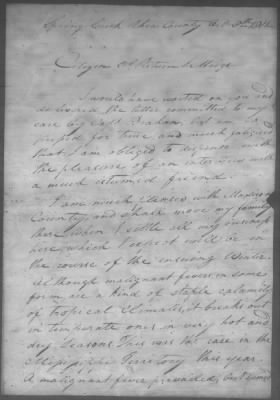 Spring Creek Ohio County Oct 5th
Citizen A. Return J. Meigs
I would have waited on you and
delivered the letter committed to my
care by Capt. Graham, but am so
for time and much fatigued
that I am obliged to dispense with
the pleasure of an interview with
a much esteemed friend.
I am much pleased with Madison
County and shall move my family
there when I settle all my business
here, which I expect will be in
the course of the ensuing Winter.
Although malignant fevers in some
form are a kind of staple calamity
of tropical Climates, it breaks out
in temperate ones in very hot and
dry Seasons. This was the case in the
Mississippi Territory this year.
A malignant fever prevailed, but